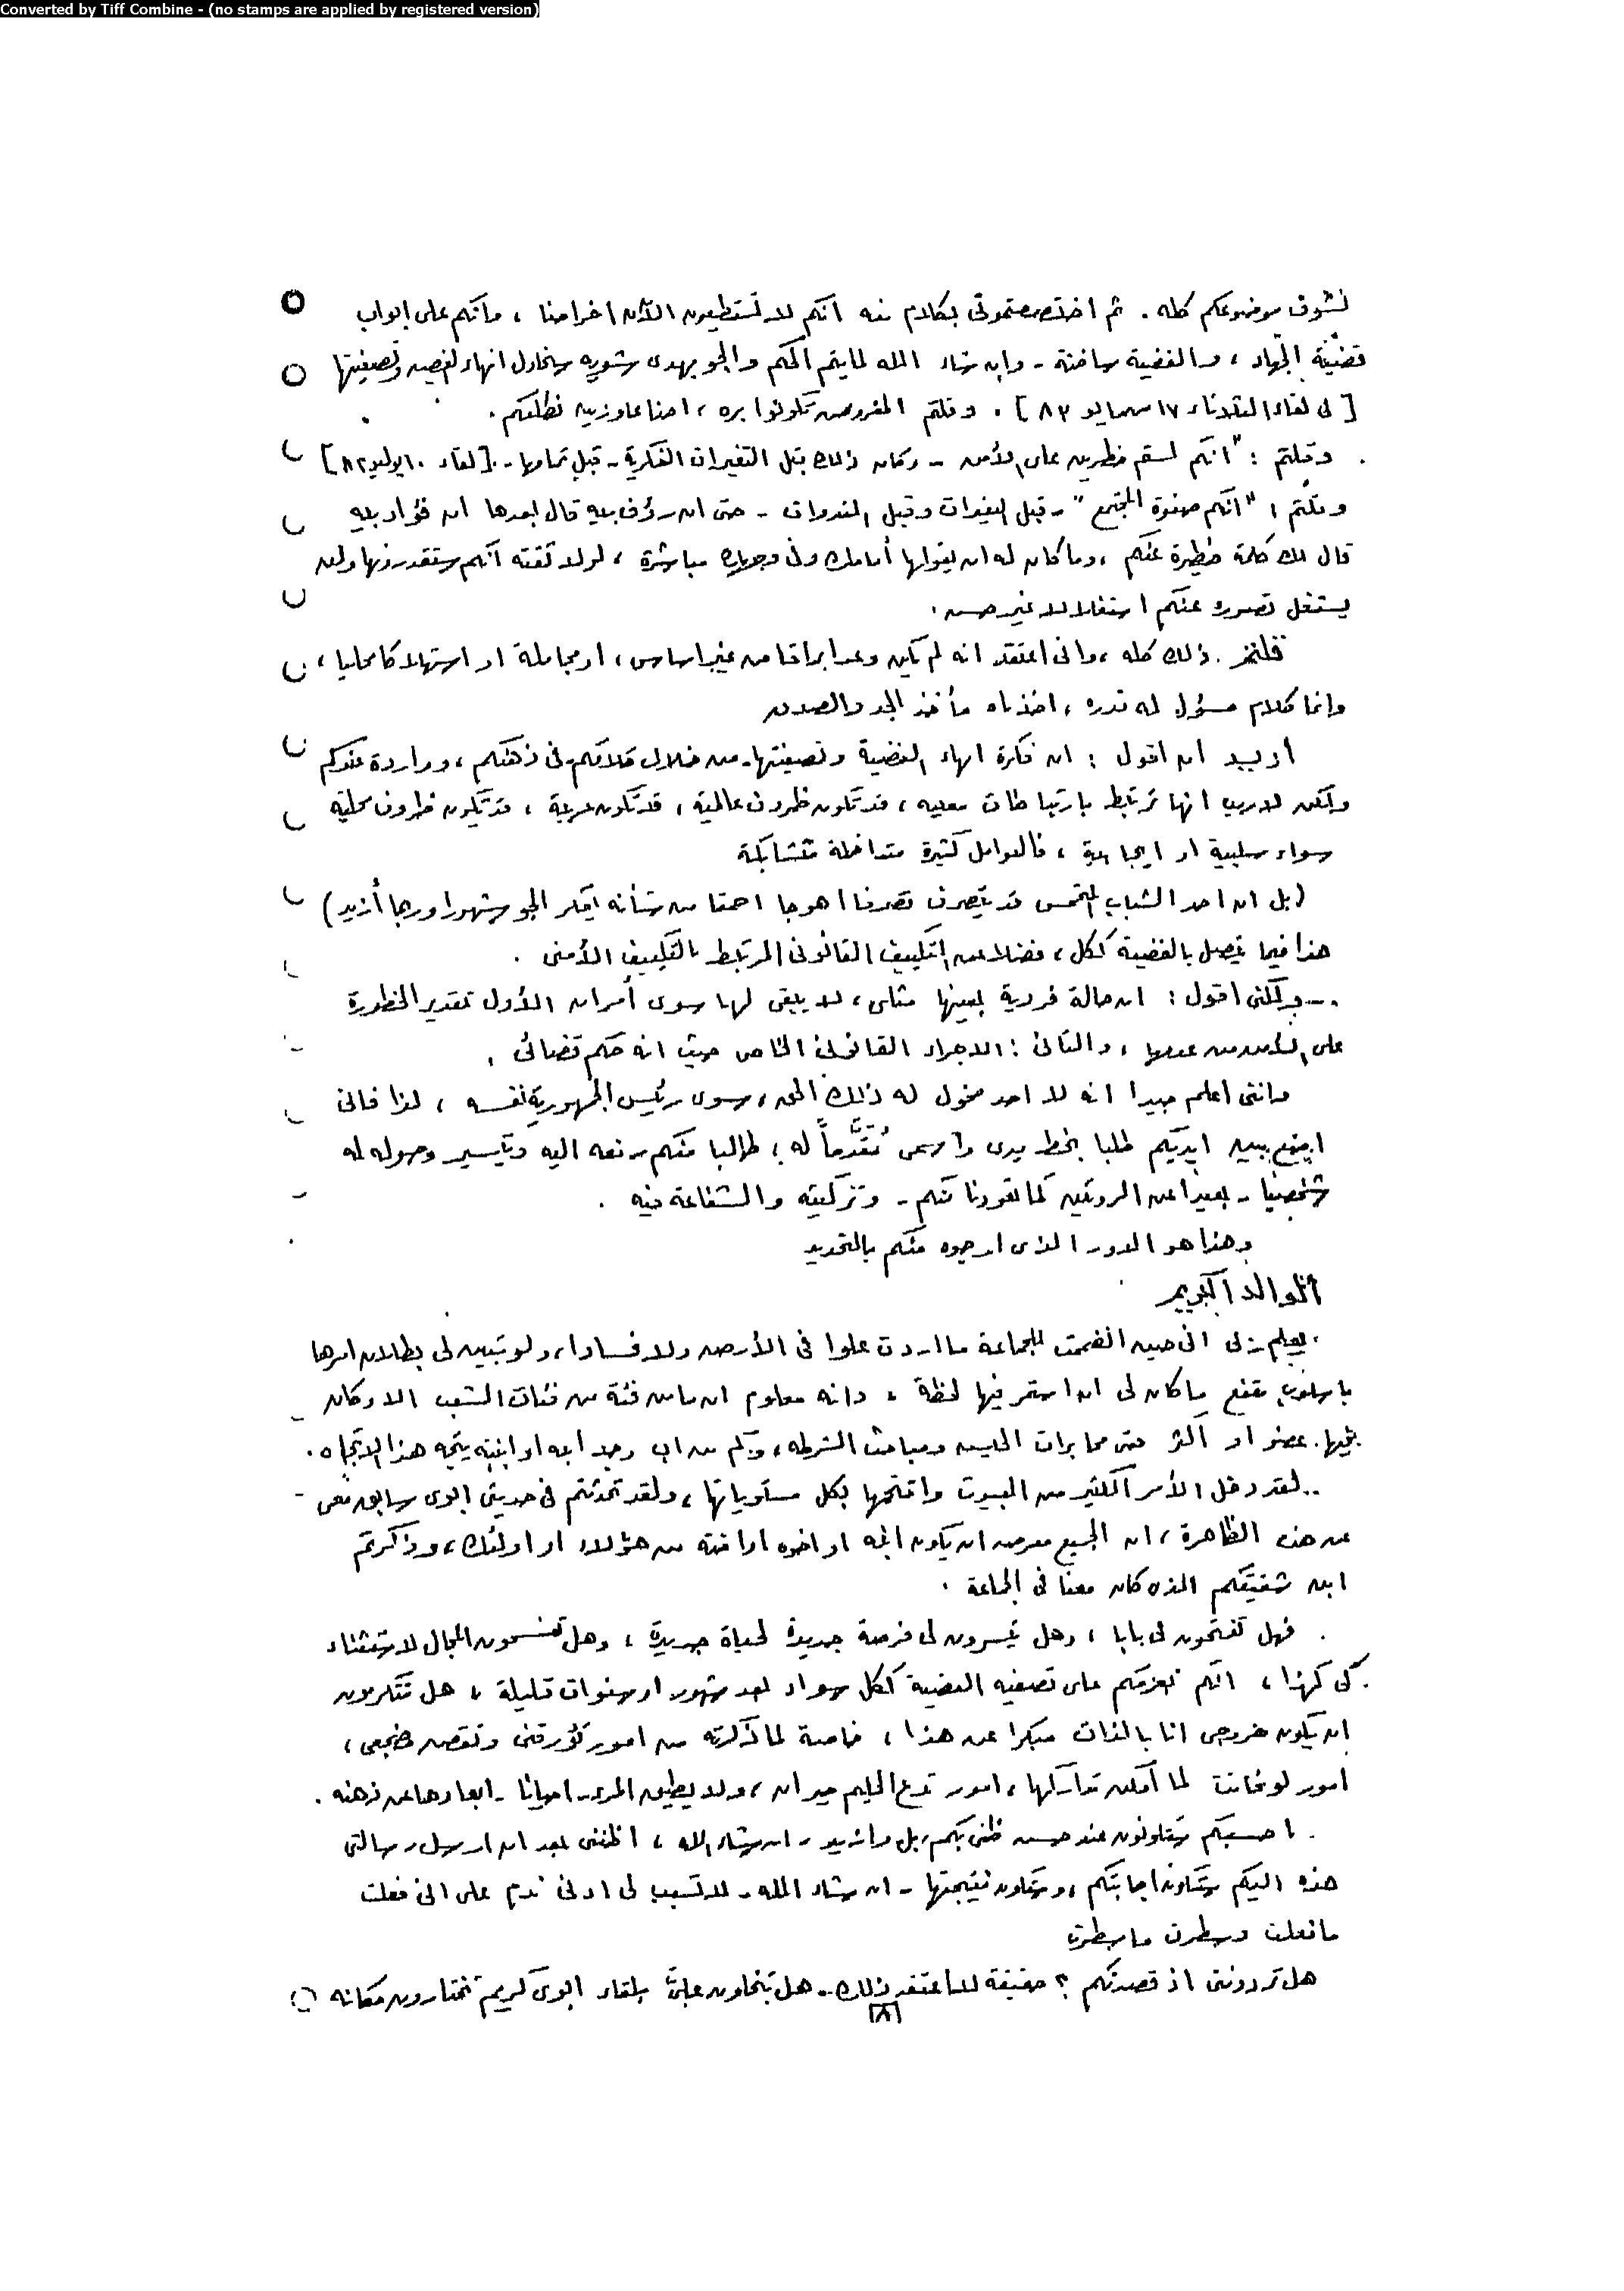 Converted by Tiff Combine - (no stamps are applied by registered version)
نشوف موضوعكم كله . ثم اختصصتمونى بكلام منه انكم لا تستطيعون الآن اخراجنا ، وأنكم على ابواب
قضية الجهاد ، والقضية ساخنة - وإن شاء الله لما يتم الحكم والجو يهدى شويه سنحاول انهاء القضيه وتصفيتها
[ فى لقاء الثلاثاء ١٧ مايو ٨٣ ] . وقلتم المفروض تكونوا بره ، احنا عاوزين نطلعكم .
وقلتم : " انكم لستم خطرين على الأمن - وكان ذلك قبل التغيرات الفكرية - قبل تمامها - [ لقاء ١٠ يوليو ٨٢ ]
وقلتم : " انكم صفوة المجتمع " - قبل التغيرات وقبل الندوات - حتى ان رؤف بيه قال بعدها ان فؤاد بيه
قال لك كلمة خطيرة عنكم ، وما كان له ان يقولها أمامك وفى وجودك مباشرة ، لولا ثقته انكم ستقدرونها ولن
يستغل تصوره عنكم استغلالا غير حسن .
ذلك كله ، وانى اعتقد انه لم يكن وعدا براقا من غير اساس ، او مجاملة او استهلاكا محليا ،
وانما كلام مسؤل له قدره ، اخذناه مأخذ الجد والصدق
أريد ان اقول : ان فكرة انهاء القضية وتصفيتها - من خلال كلامكم - فى ذهنكم ، وواردة عندكم
ولكن لا ريب انها ترتبط بارتباطات معينه ، قد تكون ظروف عالمية ، قد تكون عربية ، قد تكون ظروف محليه
سواء سلبية او ايجابية ، فالعوامل كثيرة متداخلة متشابكة
( بل ان احد الشباب المتحمس قد يتصرف تصرفا اهوجا احمقا من شأنه يعكر الجو شهورا وربما أزيد )
هذا فيما يتصل بالقضية ككل ، فضلا عن التكييف القانونى المرتبط بالتكييف الأمنى .
ولكنى اقول : ان حالة فردية بعينها مثلى ، لا يبقى لها سوى أمران الأول تقدير الخطورة
على الأمن من عدمها ، والثانى : الاجراء القانونى الخاص حيث انه حكم قضائى .
وانى اعلم جيدا انه لا احد مخول له ذلك الحق ، سوى رئيس الجمهورية نفسه ، لذا فانى
اضع بين ايديكم طلبا بخط يدى وإسمى مُقدَّماً له ؛ طالبا منكم رفعه اليه وتيسير وصوله له
شخصيا - بعيدا عن الروتين كما تعودنا منكم - وتزكيته والشفاعة فيه .
وهذا هو الدور الذى ارجوه منكم بالتحديد
الوالد الكريم
يعلم ربى انى حين انضممت للجماعة ما اردت علوا فى الأرض ولا فسادا ، ولو تبين لى بطلان امرها
باسلوب مقنع ما كان لى ان استمر فيها لحظة ، وانه معلوم ان ما من فئة من فئات الشعب الا وكان
فيها عضو او اكثر حتى مخابرات الجيش ومباحث الشرطه ، وكم من اب وجد ابنه او ابنته يتجه هذا الاتجاه .
لقد دخل الأمر الكثير من البيوت واقتحمها بكل مستوياتها ، ولقد تحدثتم فى حديث ابوى سابق معى
عن هذه الظاهرة ، ان الجميع معرض ان يكون ابنه او اخوه او اخته من هؤلاء او اولئك ، وذكرتم
ابن شقيقكم الذى كان معنا فى الجماعة .
فهل تفتحون لى بابا ، وهل تيسرون لى فرصة جديدة لحياة جديدة ، وهل تفسحون المجال لاستثناء
كى كهذا ، انكم بعزمكم على تصفيه القضية ككل سواء بعد شهور او سنوات قليلة ، هل تتكرمون
ان يكون خروجى انا بالذات مبكرا عن هذا ، خاصة لما ذكرته من امور تؤرقنى وتقض مضجعى ،
امور لو فاتت لما أمكن تداركها ، امور تدع الحليم حيران ، ولا يطيق المرء - احيانا - ابعادها عن ذهنه .
احسبكم ستكونون عند حسن ظنى بكم ، بل وازيد - ان شاء الله ، اظننى بعد ان ارسل رسالتى
هذه اليكم ستكون اجابتكم ، وستكون نتيجتها - ان شاء الله - لا تسبب لى ادنى ندم على انى فعلت
ما فعلت وسطرت ما سطرت
هل تردوننى اذ قصدتكم ؟ حقيقة لا أعتقد ذلك - هل تبخلون علىَّ بلقاء ابوى كريم تختارون مكانه
[٨]